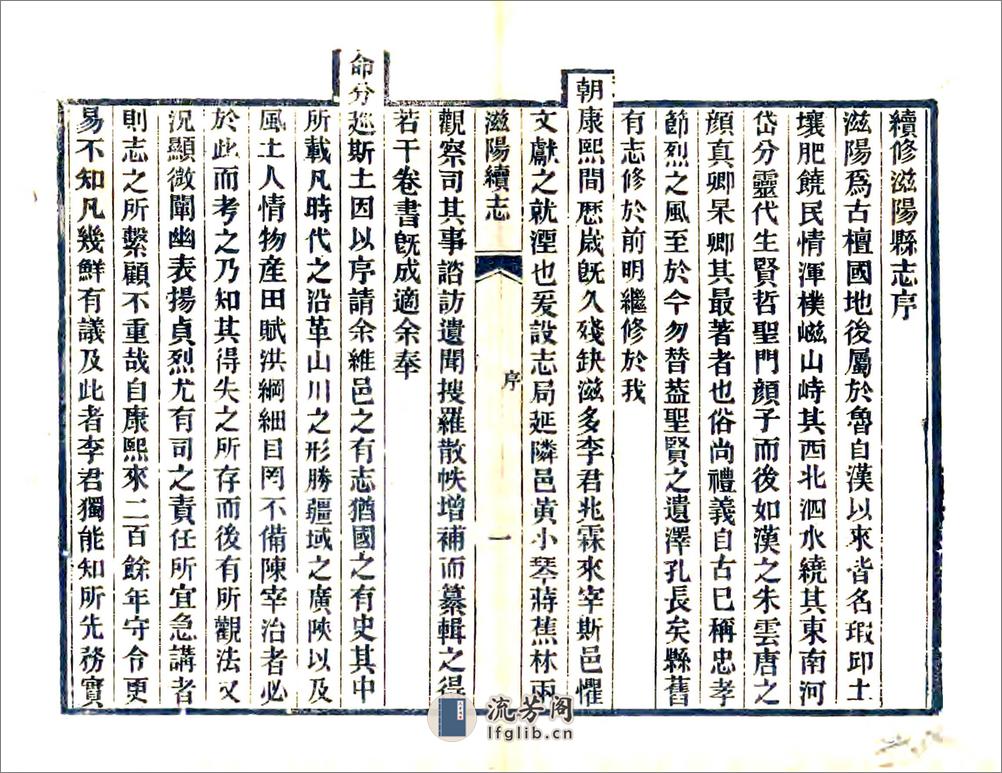 續修滋陽縣志序
滋陽爲古檀國地後屬於魯自漢以來皆名瑕邱土
壤肥饒民情渾樸嵫山峙其西北泗水繞其東南河
岱分靈代生賢哲聖門顏子而後如漢之朱雲唐之
顏真卿杲卿其最著者也俗尚禮義自古已稱忠孝
節烈之風至於今勿替葢聖賢之遺澤孔長矣縣舊
有志修於前明繼修於我
朝康熙間歷歲旣久殘缺滋多李君兆霖來宰斯邑懼
文獻之就湮也爰設志局延隣邑黃小琴蔣蕉林兩
滋陽續志
序
一
觀察司其事諮訪遺聞搜羅散帙增補而纂輯之得
若干卷書旣成適余奉
命分巡斯土因以序請余維邑之有志猶國之有史其中
所載凡時代之沿革山川之形勝疆域之廣陝以及
風土人情物産田賦洪綱細目罔不備陳宰治者必
於此而考之乃知其得失之所存而後有所觀法又
況顯微闡幽表揚貞烈尤有司之責任所宜急講者
則志之所繫顧不重哉自康熙來二百餘年守令更
易不知凡幾鮮有議及此者李君獨能知所先務實
流芳阁
lfglib.cn